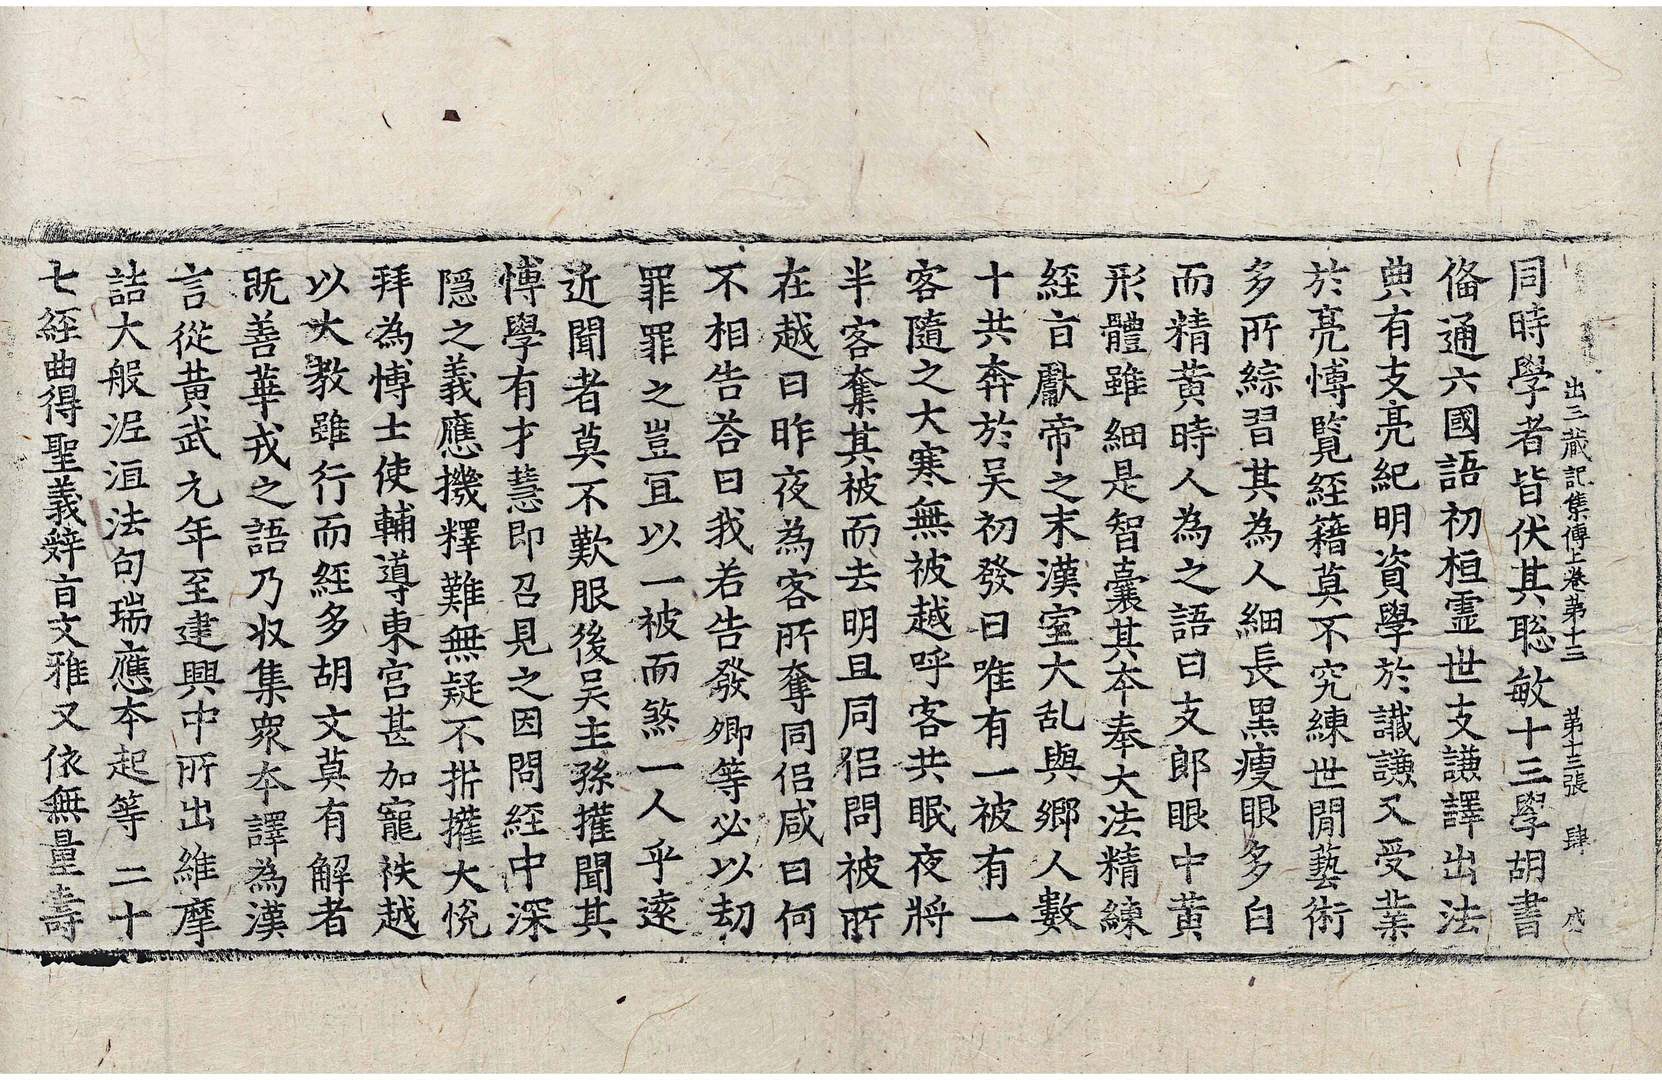 出三藏記集傳上卷第十三 第十三張 肆
同時學者皆伏其聡敏十三學胡書
俻通六國語初桓霊世支謙譯出法
典有支亮紀明資學於讖謙又受業
於亮愽覽經籍莫不究練世閒藝術
多所綜習其為人細長黒瘦眼多白
而精黄時人為之語曰支郎眼中黄
形體雖細是智囊其夲奉大法精練
經㫖獻帝之末漢室大乱與郷人數
十共奔於吴初發日唯有一被有一
客隨之大寒無被越呼客共眠夜將
半客奪其被而去明旦同侣問被所
在越曰昨夜為客所奪同侣咸曰何
不相告荅曰我若告發卿等必以刧
罪罪之豈冝以一被而煞一人乎逺
近聞者莫不歎服後吴主孫㩲聞其
愽學有才慧即召見之因問經中深
隱之義應機釋難無疑不㭊㩲大恱
拜為愽士使輔導東宫甚加寵袟越
以大教雖行而經多胡文莫有解者
既善華戎之語乃収集衆夲譯為漢
言從黄武元年至建興中所出維摩
詰大般泥洹法句瑞應夲起等二十
七經曲得聖義辤㫖文雅又依無量壽